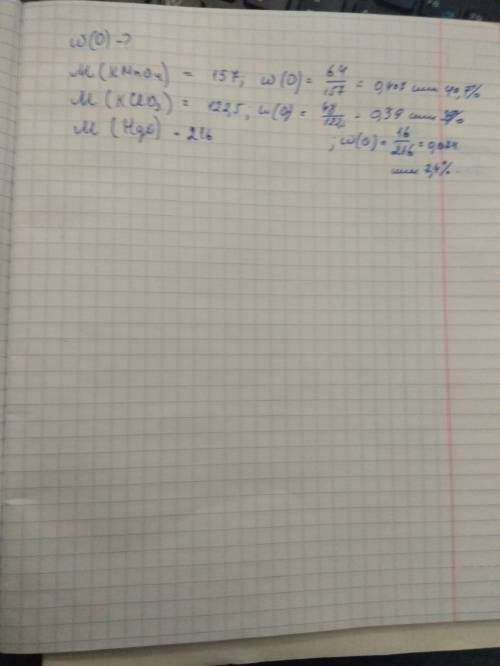 w(O)-?
M(KMnO₄) = 157, w(O) = 64/157 = 0,407 или 40,7%
M(KClO₃) = 122,5, w(O) = 48/122, = 0,39 или 39%
M(HgO) = 216, w(O) = 16/216 = 0,024
или 2,4%.